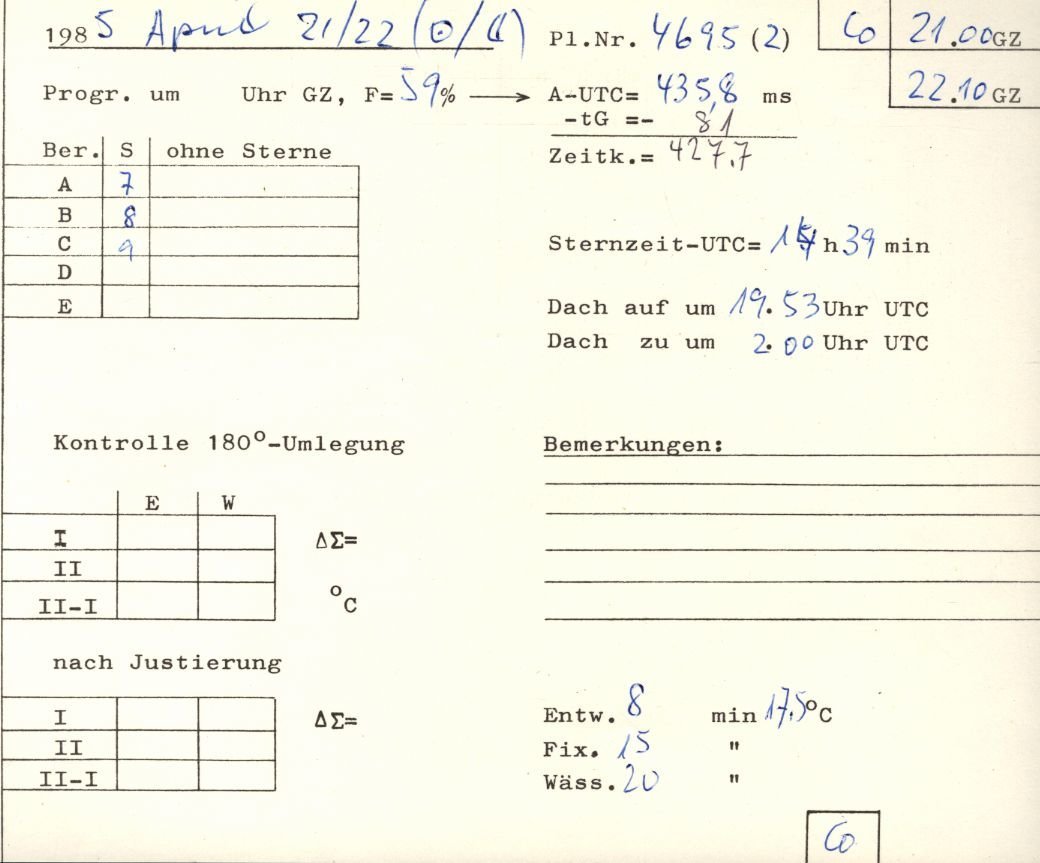 1985 April 21/22 (⊙/☾) Pl.Nr. 4695 (2) Co 21.00 GZ
22.10 GZ
Progr. um Uhr GZ, F= 59% → A-UTC= 435,8 ms
-tG =- 8,1
Zeitk.= 427,7
Ber. S ohne Sterne
A 7
B 8
C 9
D
E
Sternzeit-UTC= h 39 min
Dach auf um 19.53 Uhr UTC
Dach zu um 2.00 Uhr UTC
Kontrolle 180°-Umlegung
Bemerkungen:
E W
I ΔΣ=
II
II-I °C
nach Justierung
I ΔΣ=
II
II-I
Entw. 8 min 17,5°C
Fix. 15 "
Wäss. 20 "
Co